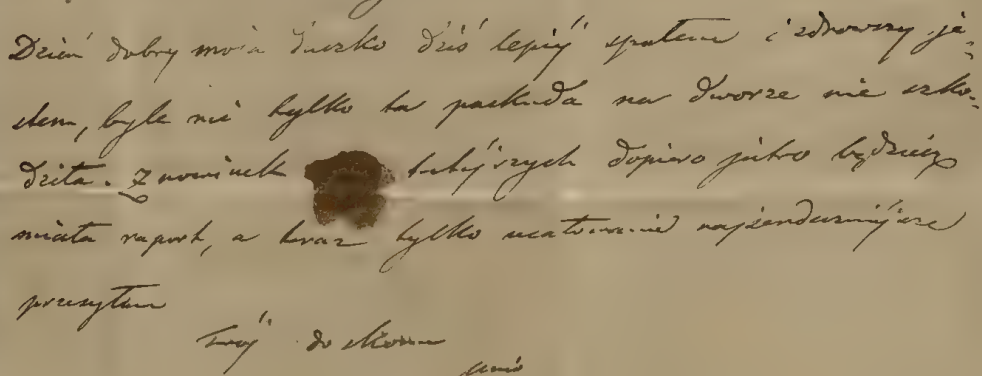 Dzień dobry moia duszko dziś lepiý spałem i zdrowszy je-
stem, byle mi tylko ta paskuda na dworze nie szko-
dziła. Z nowinek tutéjszych dopiero jutro będziesz
miała raport, a teraz tylko ucałowanie najserdeczniéjsze
przesyłam
Twój do skonu